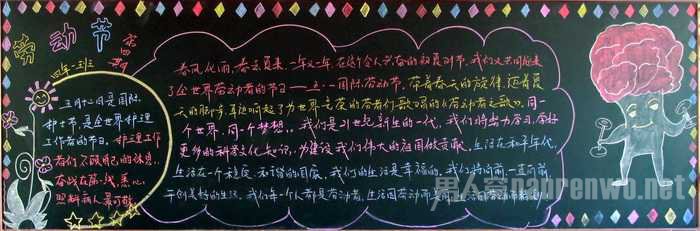 劳动节
第四期
四年一班
五月十二日是国际
护士节,是全世界护理
工作者的节日。护理工作
者们不顾自己的休息,
奋战在第一线,悉心
照料病人最可敬
春风化雨,春去夏来,一年又一年,在这个令人兴奋的初夏时节,我们又共同迎来
了全世界劳动者的节日——五·一国际劳动节,带着春天的旋律,迈着夏
天的脚步,耳边响起了为世界之英的劳动者们歌唱的《劳动者之歌》。同一
个世界,同一个梦想,我们是21世纪新生的一代,我们将努力学习,学好
更多的科学文化知识,为建设我们伟大的祖国做贡献。生活在和平年代,
生活在一个稳定、和谐的国家,我们的生活是幸福的,我们将向前,一直向前,
开创美好的生活,我们每一个人都是劳动者,生活因劳动而
男人窝nanrenwo.net